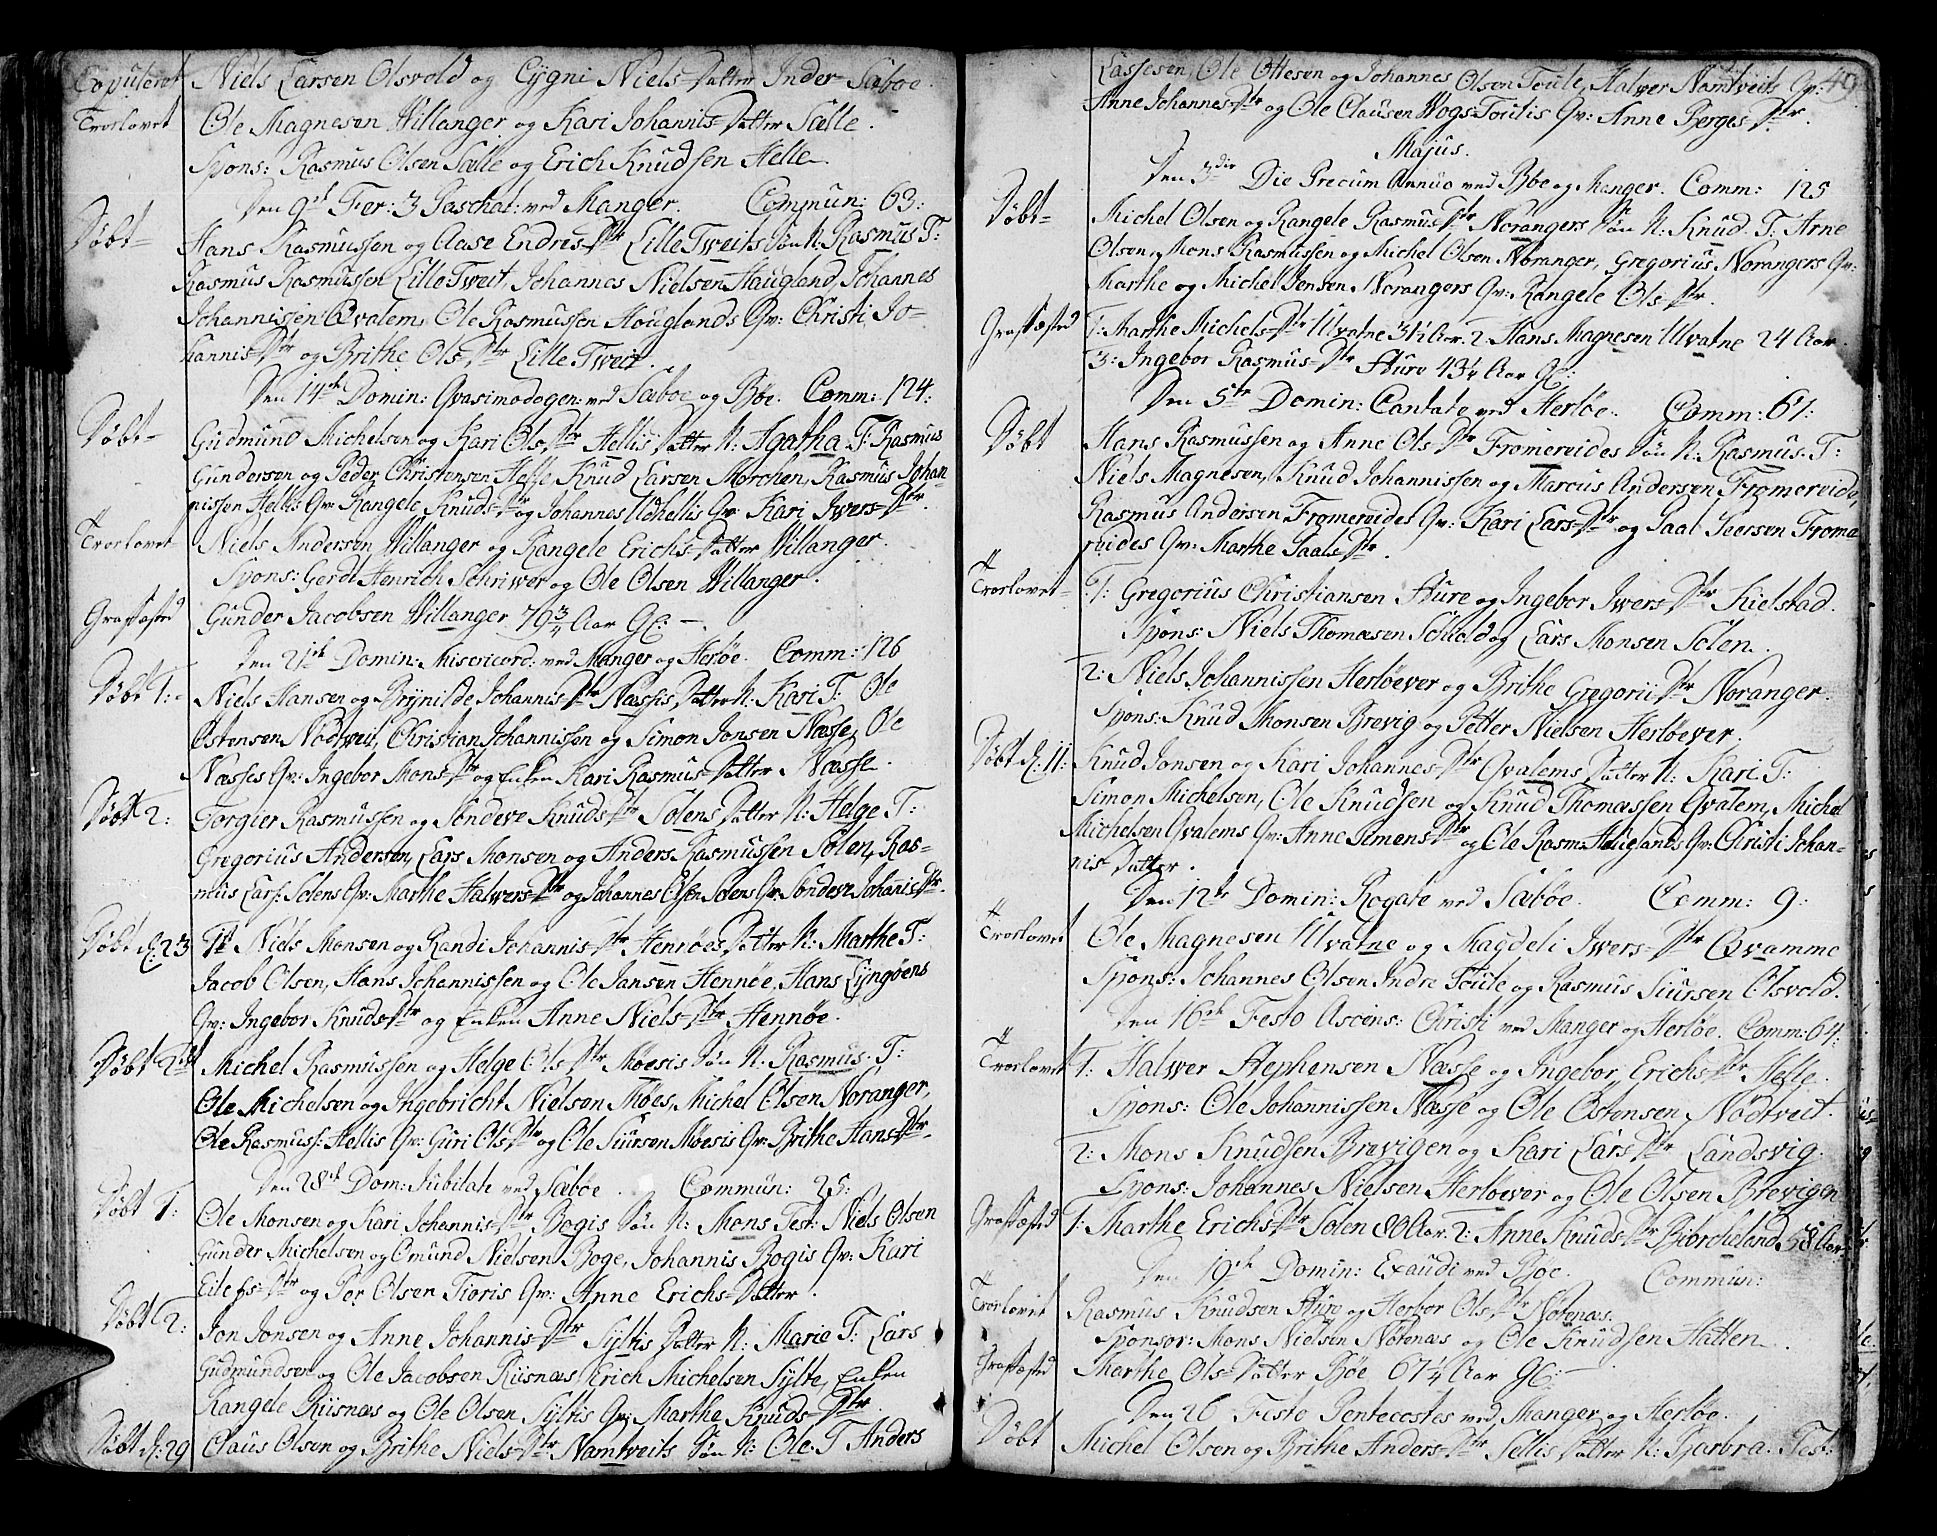 Copuleret Niels Larsen Olsvold og Cygni Niels-Datter Inder-Sæboe.
Trorlovet Ole Magnesen Willanger og Kari Johannis-Datter Sælle.
Spons: Rasmus Olsen Sælle og Erich Knudsen Helle.
Den 9de Fer: 3 Paschat: ved Manger. Commun: 63:
Døbt- Hans Rasmussen og Aase Endres-Dtr Lille Tweits Søn N: Rasmus T:
Rasmus Rasmussen Lille Tweit, Johannes Nielsen Haugland, Johannes
Johannissen Qvalem, Ole Rasmussen Houglands Qv: Christi Jo-
hannis Dtr og Brithe Ols-Dtr Lille Tweit.
Den 14de Domin: Qvasimodogen: ved Sæboe og Bøe. Comm: 124:
Døbt- Gudmund Michelsen og Kari Ols-Dtr Hellis Datter N: Agatha T: Rasmus
Gundersen og Peder Christensen Helle, Knud Larsen Morchen, Rasmus Johan
nissen Hellis Qv: Rangele Knuds-Dtr og Johannes Udhellis Qv: Kari Iwers-Dtr.
Trorlovet Niels Andersen Willanger og Rangele Erichs-Datter Willanger.
Spons: Gerdt Henrich Schriwer og Ole Olsen Willanger.
Graffæsted Gunder Jacobsen Willanger 79 3/4 Aar G:
Den 21de Domin: Misericord: ved Manger og Herløe. Comm: 126
Døbt 1: Niels Hansen og Brynilde Johannis-Dtr Næssis Datter N: Kari T: Ole
Østensen Nødtveit, Christian Johannissen og Simon Jonsen Næsse, Ole
Næsses Qv: Ingebor Mons-Dtr og Enken Kari Rasmus-Datter Næsse.
Døbt 2: Torgier Rasmussen og Søndeve Knuds Dtr Solens Datter N: Helge T:
Gregorius Andersen, Lars Monsen og Anders Rasmussen Solen, Ras-
mus Lars: Solens Qv: Marthe Halwers-Dtr og Johannes Olsen Solens Qv: Søndeve Johannis-Dtr.
Døbt d: 23 Niels Monsen og Randi Johannis-Dtr Hennøes Datter N: Marthe T:
Jacob Olsen, Hans Johannissen og Ole Jansen Hennøe, Hans Lyngøens
Qv: Ingebor Knuds-Dtr og Enken Anne Niels-Dtr Hennøe.
Døbt Michel Rasmussen og Helge Ols Dtr Møesis Søn N: Rasmus. T:
Ole Michelsen og Ingebricht Nielsen Møes, Michel Olsen Noranger,
Ole Rasmuss: Hellis Qv: Guri Ols Dtr og Ole Siursen Møesis Qv: Brithe Hans-Dtr-
Den 28de Dom: Jubilate ved Sæboe. Commun: 25:
Døbt 1: Ole Monsen og Kari Johannis-Dtr Bogis Søn N: Mons Test: Niels Olsen
Gunder Michelsen og Omund Nielsen Boge, Johannis Bogis Qv: Kari
Eilefs-Dtr og Per Olsen Tioris Qv: Anne Erichs-Datter.
Døbt 2: Jon Jonsen og Anne Johannis-Dtr Syltis Datter N: Marie T: Lars
Gudmundsen og Ole Jacobsen Riisnæs, Erich Michelsen Sylte, Enken
Rangele Riisnæs og Ole Olsen Syltis Qv: Marthe Knuds-Dtr.
Døbt d: 29 Claus Olsen og Brithe Niels-Dtr Namtveits Søn N: Ole. T: Anders
49
Lassesen, Ole Ottesen og Johannes Olsen Toule, Halwer Namtveits Qv:
Anne Johannes-Dtr og Ole Clausen Hogs-Toulis Qv: Anne Berges-Dtr.
Majus.
Den 3die Die Precum Annuo ved Bøe og Manger. Comm: 125
Døbt- Michel Olsen og Rangele Rasmus Dtr Norangers Søn N: Knud. T: Arne
Olsen, Mons Rasmussen og Michel Olsen Noranger, Gregorius Norangers Qv:
Marthe og Michel Jensen Norangers Qv: Rangele Ols-Dtr.
Graffæsted 1: Marthe Michels-Dtr Ulvatne 3 1/2 Aar. 2: Hans Magnesen Ulvatne 24 Aar.
3: Ingebor Rasmus-Dtr Hure 43 1/4 Aar G:
Den 5te Domin: Cantate ved Herløe. Comm: 67:
Døbt Hans Rasmussen og Anne Ols Dtr Fromereides Søn N: Rasmus. T:
Niels Magnesen, Knud Johannissen og Marcus Andersen Fromereide,
Rasmus Andersen Fromereides Qv: Kari Lars-Dtr og Paal Peersen Frome
reides Qv: Marthe Paals-Dtr.
Trorlovet- 1: Gregorius Christiansen Hure og Ingebor Iwers-Dtr Kielstad.
Spons: Niels Thomæsen Schold og Lars Monsen Solen.
2: Niels Johannissen Herløever og Brithe Gregorii Dtr Noranger.
Spons: Knud Monsen Brevig og Petter Nielsen Herløever.
Døbt d: 11: Knud Jonsen og Kari Johannes-Dtr Qvalems Datter N: Kari T:
Simon Michelsen, Ole Knudsen og Knud Thomæssen Qvalem, Michel
Michelsen Qvalems Qv: Anne Simens-Dtr og Ole Rasm: Houglands Qv: Christi Johan-
nis-Datter.
Den 12te Domin: Rogate ved Sæbøe. Comm: 9:
Trorlovet Ole Magnesen Ulvatne og Magdeli Iwers-Dtr Qvamme
Spons: Johannes Olsen Indre Toule og Rasmus Siursen Olsvold.
Den 16de Festo Ascens: Christi ved Manger og Herløe. Comm: 64:
Trorlovet 1: Halwer Stephensen Næsse og Ingebor Erichs-Dtr Helle.
Spons: Ole Johannissen Næsse og Ole Østensen Nødtveit.
2: Mons Knudsen Brevigen og Kari Lars Dtr Landsvig.
Spons: Johannes Nielsen Herløever og Ole Olsen Brevigen
Graffæsted 1: Marthe Erichs-Dtr Solen 80 Aar. 2: Anne Knuds-Dtr Biørcheland 58 Aar.
Den 19de Domin: Exaudi ved Bøe. Commun:
Trorlovet Rasmus Knudsen Hure og Herbor Ols-Dtr Notenæs.
Sponsor: Mons Nielsen Notenæs og Ole Knudsen Hatten.
Graffæsted Marthe Ols-Datter Bøe 67 1/4 Aar G:-
Den 26 Festo Pentecostes ved Manger og Herløe.
Døbt Michel Olsen og Brithe Anders-Dtr Sellis Datter N: Barbra: Test: